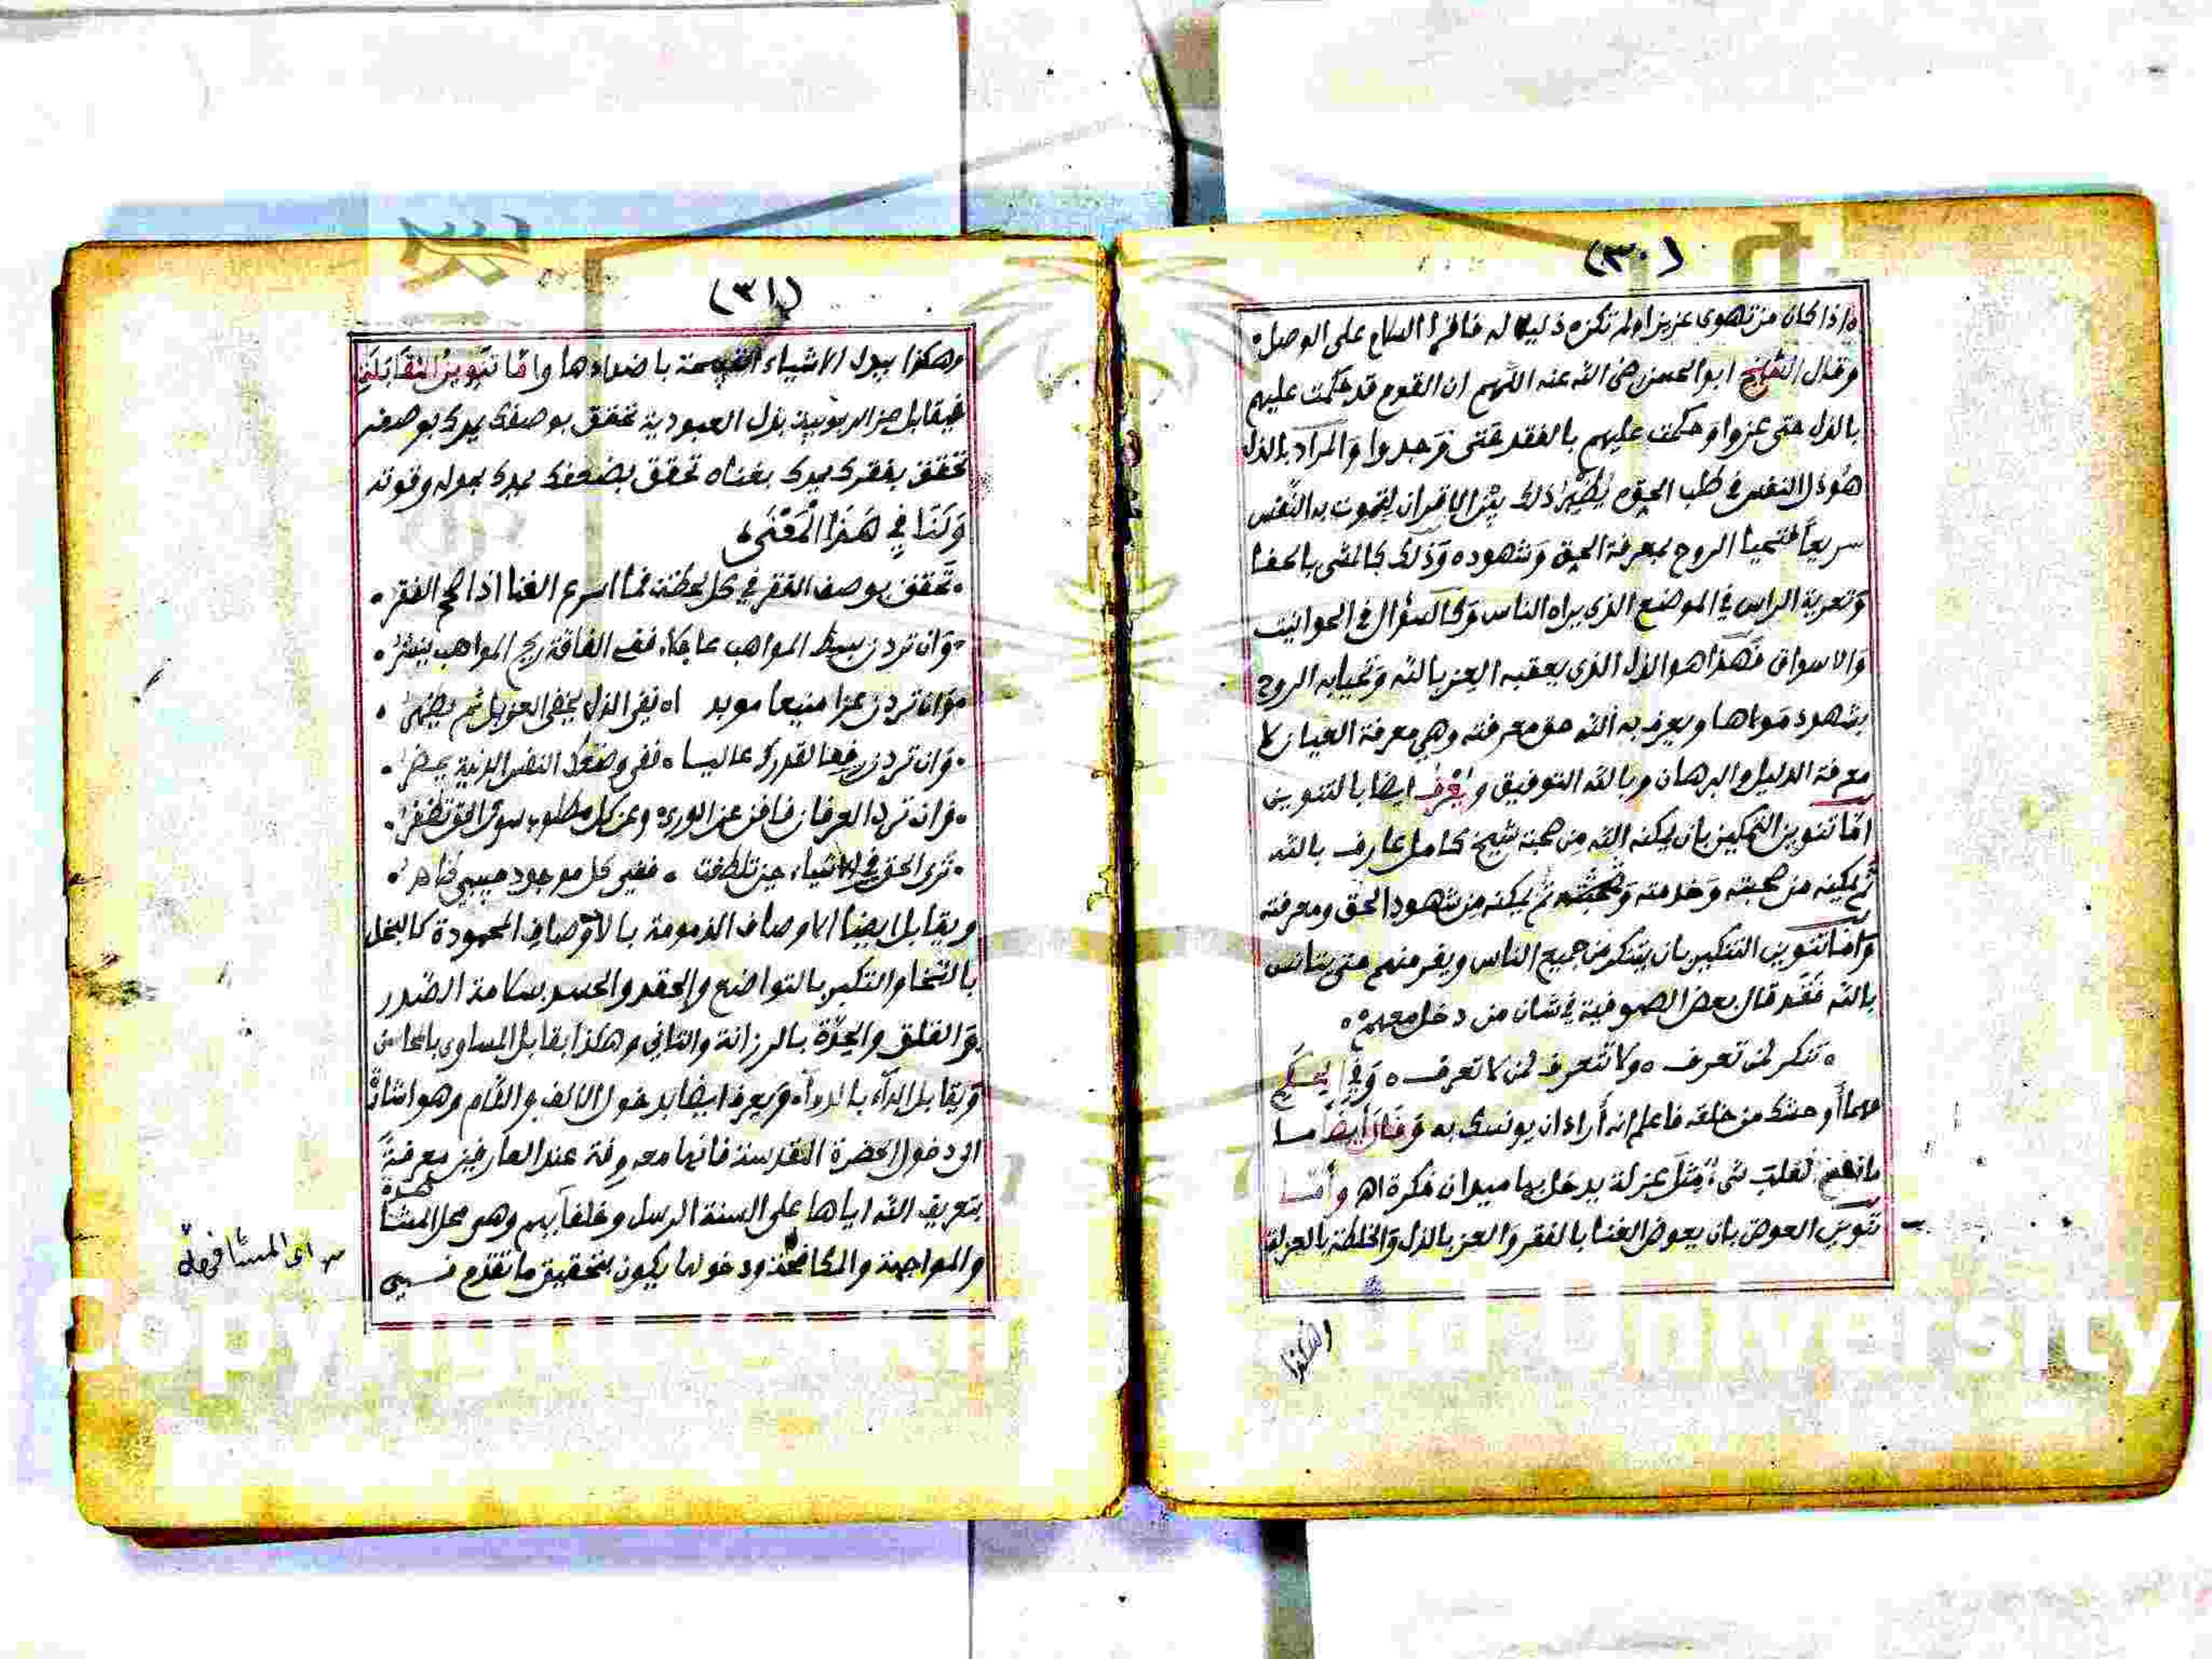 (٣٠)
اذا كان من تهوى عزيزا ولم تكن ذليلا له فاقرا السلام على الوصل
وقال الشيخ ابو الحسن رضي الله عنه اللهم ان القوم قد حكمت عليهم
بالذل حتى عزوا وحكمت عليهم بالفقد حتى وجدوا والمراد بالذل
هو ذل النفس في طلب الحق يظهر ذلك بين الاقران لتموت به النفس
سريعا فتحيا الروح بمعرفة الحق وشهوده وذلك كالمشي بالحفا
وتعرية الراس في الموضع الذي يراه الناس وكالسؤال في الحوانيت
والاسواق فهذا هو الذل الذي يعقبه العز بالله وتحيا به الروح
بشهود مولاها ويعرف به الله حق معرفته وهي معرفة العيان لا
معرفة الدليل والبرهان وبالله التوفيق ويعرف ايضا بالتنوين
اما تنوين التمكين بان يمكنه الله من صحبة شيخ كامل عارف بالله
ثم يمكنه من صحبته وخدمته ثم يمكنه من شهود الحق ومعرفته
واما تنوين التنكير بان يتنكر من جميع الناس ويفر منهم حتى يتانس
بالله فقد قال بعض الصوفية في شان من دخل معهم
تنكر لمن تعرف ولا تتعرف لمن لا تعرف وفي الحكم
مهما أوحشك من خلقه فاعلم انه أراد ان يونسك به وقال أيضا ما
نفع القلب شيء مثل عزلة يدخل بها ميدان فكرة اه وأما
تنوين العوض بان يعوض الغنا بالفقر والعز بالذل والخلطة بالعزلة
وهكذا
(٣١)
وهكذا يبدل الاشياء القبيحة باضدادها واما تنوين المقابلة
فيقابل عز الربوبية بذل العبودية تحقق بوصفك يمدك بوصفه
تحقق بفقرك يمدك بغناه تحقق بضعفك يمدك بحوله وقوته
ولنا في هذا المعنى
تحقق بوصف الفقر في كل لحظة فما اسرع الغنا اذا صح الفقر
وان تردن بسط المواهب عاجلا ففي الفاقة ريح المواهب ينشر
وان تردن عزا منيعا موبدا ففي الذل يخفى العز بل ثم يظهر
وان تردن رفعا لقدرك عاليا ففي وضعك النفس الدنية يحضر
وان ترد العرفان فافن عن الورى وعن كل مطلوب سوى الحق تظفر
ترى الحق في الاشياء حين تلطفت ففي كل موجود حبيبي ظاهر
ويقابل ايضا الاوصاف الذمومة بالاوصاف المحمودة كالبخل
بالسخا والتكبر بالتواضع والحقد والحسد بسلامة الصدر
والقلق والحدة بالرزانة والتاني وهكذا يقابل المساوى بالمحاسن
ويقابل الداء بالدواء ويعرف ايضا بدخول الالف واللام وهو اشارة
الى دخول الحضرة القدسة فانها معروفة عند العارفين معرفة
بتعريف الله اياها على السنة الرسل وخلفائهم وهو محل المشاهدة
والمواجهة والمكافحة ودخولها يكون بتحقيق ما تقدم فسيى